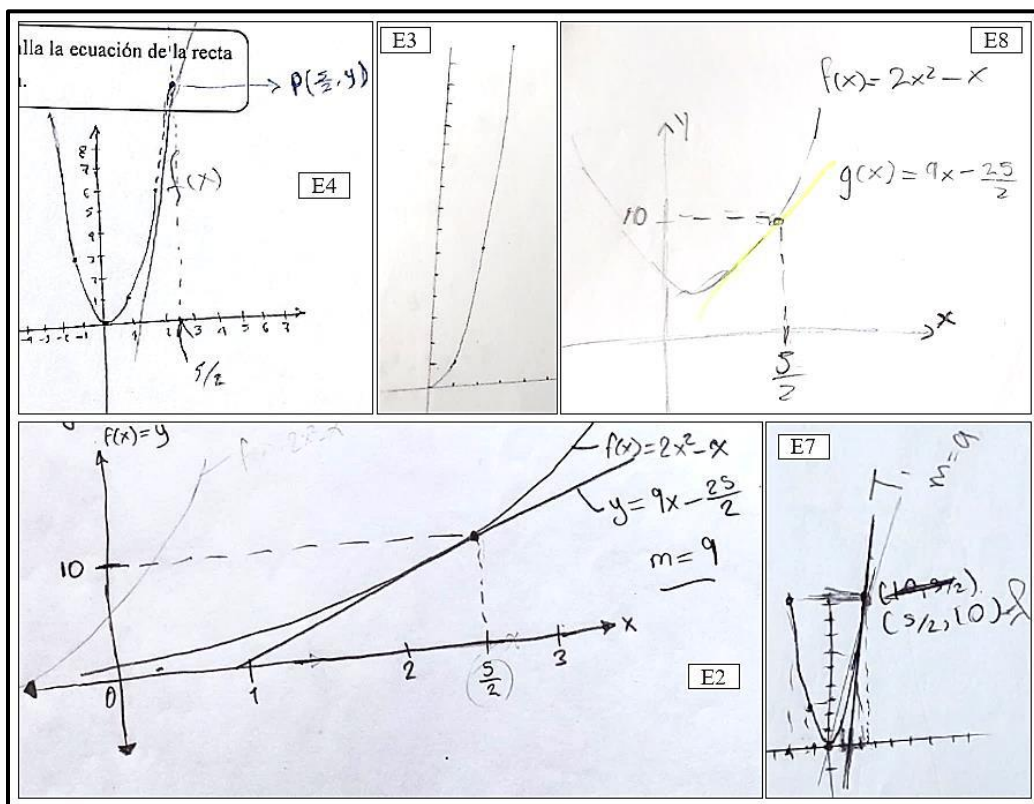 lla la ecuación de la recta
P(5/2, y)
8
7
6
5
4
3
2
1
f(x)
-4 -3 -2 -1 1 2 3 4 5 6 7
5/2
E4
E3
E8
f(x) = 2x² - x
y
g(x) = 9x - 25/2
10
x
5/2
f(x) = y
f(x) = 2x² - x
y = 9x - 25/2
m = 9
10
x
0 1 2 5/2 3
E2
E7
m = 9
(5/2, 10)